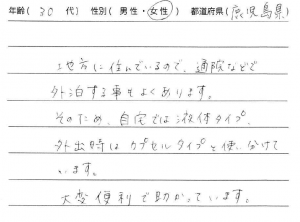 年齢( 30 代) 性別( 男性・女性 ) 都道府県( 鹿児島県 )
地方に住んでいるので、通院などで
外泊する事もよくあります。
そのため、自宅では液体タイプ、
外出時はカプセルタイプと使い分けて
います。
大変便利で助かっています。